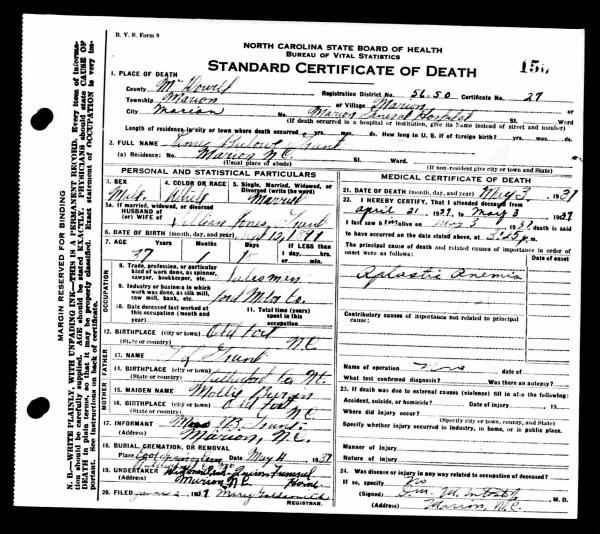 R. V. S. Form 8
NORTH CAROLINA STATE BOARD OF HEALTH
BUREAU OF VITAL STATISTICS
STANDARD CERTIFICATE OF DEATH
1. PLACE OF DEATH
County McDowell
Registration District No. 56-50 Certificate No. 27
Township Marion or Village Marion
City Marion No. Marion General Hospital St.
(If death occurred in a hospital or institution, give its Name instead of street and number)
Length of residence in city or town where death occurred yrs. mos. ds. How long in U. S. if of foreign birth? yrs. mos. ds.
2. FULL NAME
(a) Residence: No. Marion N.C. St. Ward.
(Usual place of abode) (If non-resident give city or town and State)
PERSONAL AND STATISTICAL PARTICULARS
3. SEX Male
4. COLOR OR RACE White
5. Single, Married, Widowed, or Divorced (write the word) Married
5a. If married, widowed, or divorced
HUSBAND of
(or) WIFE of
6. DATE OF BIRTH (month, day, and year)
7. AGE 37 1
If LESS than
1 day, hrs.
or min.
OCCUPATION
8. Trade, profession, or particular kind of work done, as spinner, sawyer, bookkeeper, etc. Salesman
9. Industry or business in which work was done, as silk mill, saw mill, bank, etc. Ford Motor Co.
10. Date deceased last worked at this occupation (month and year)
11. Total time (years) spent in this occupation
12. BIRTHPLACE (city or town) Old Fort
(State or country) N.C.
FATHER
13. NAME
14. BIRTHPLACE (city or town)
(State or country)
MOTHER
15. MAIDEN NAME Mollie
16. BIRTHPLACE (city or town) Old Fort
(State or country) N.C.
17. INFORMANT
(Address) Marion, N.C.
18. BURIAL, CREMATION, OR REMOVAL
Place Date May 4 1937
19. UNDERTAKER Funeral Home
(Address) Marion N.C.
20. FILED 1937
MEDICAL CERTIFICATE OF DEATH
21. DATE OF DEATH (month, day, and year) May 3, 1937
22. I HEREBY CERTIFY, That I attended deceased from
April 21 1937, to May 3 1937
I last saw him alive on May 3 1937 death is said
to have occurred on the date stated above, at p.m.
The principal cause of death and related causes of importance in order of onset were as follows:
Date of onset
Aplastic Anemia
Contributory causes of importance not related to principal cause:
Name of operation None date of
What test confirmed diagnosis? Was there an autopsy?
23. If death was due to external causes (violence) fill in also the following:
Accident, suicide, or homicide? Date of injury 19
Where did injury occur?
(Specify city or town, county, and State)
Specify whether injury occurred in industry, in home, or in public place.
Manner of injury
Nature of injury
24. Was disease or injury in any way related to occupation of deceased?
If so, specify No
(Signed) M. D.
(Address) Marion, N.C.
MARGIN RESERVED FOR BINDING
N. B.—WRITE PLAINLY, WITH UNFADING INK—THIS IS A PERMANENT RECORD. Every item of information should be carefully supplied. AGE should be stated EXACTLY. PHYSICIANS should state CAUSE OF DEATH in plain terms, so that it may be properly classified. Exact statement of OCCUPATION is very important. See instructions on back of certificate.